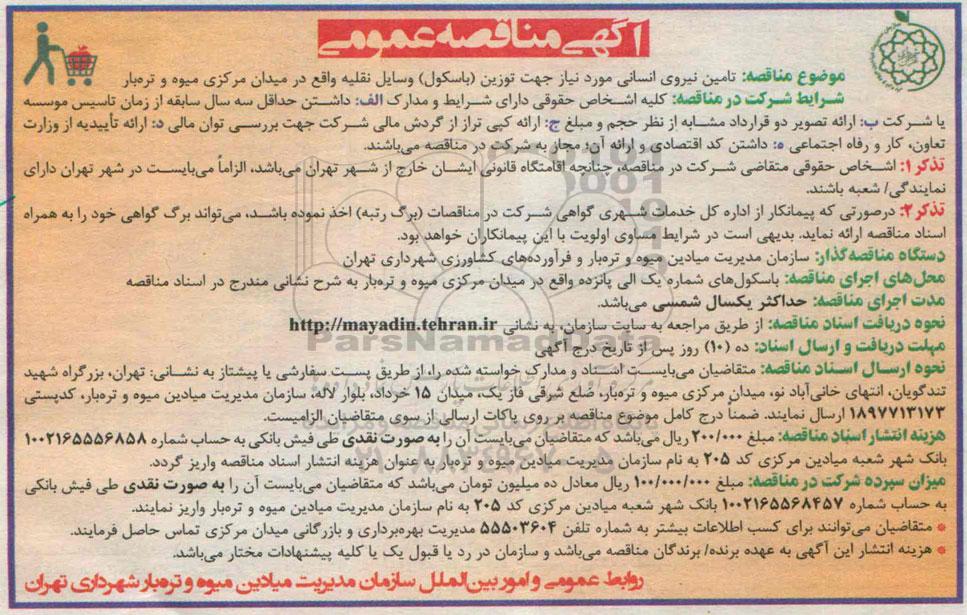 آگهی مناقصه عمومی
موضوع مناقصه: تامین نیروی انسانی مورد نیاز جهت توزین (باسکول) وسایل نقلیه واقع در میدان مرکزی میوه و تره‌بار
شرایط شرکت در مناقصه: کلیه اشخاص حقوقی دارای شرایط و مدارک الف: داشتن حداقل سه سال سابقه از زمان تاسیس موسسه
یا شرکت ب: ارائه تصویر دو قرارداد مشابه از نظر حجم و مبلغ ج: ارائه کپی تراز از گردش مالی شرکت جهت بررسی توان مالی د: ارائه تأییدیه از وزارت
تعاون، کار و رفاه اجتماعی ه: داشتن کد اقتصادی و ارائه آن؛ مجاز به شرکت در مناقصه می‌باشند.
تذکر ۱: اشخاص حقوقی متقاضی شرکت در مناقصه، چنانچه اقامتگاه قانونی ایشان خارج از شهر تهران می‌باشد، الزاماً می‌بایست در شهر تهران دارای
نمایندگی/ شعبه باشند.
تذکر ۲: درصورتی که پیمانکار از اداره کل خدمات شهری گواهی شرکت در مناقصات (برگ رتبه) اخذ نموده باشد، می‌تواند برگ گواهی خود را به همراه
اسناد مناقصه ارائه نماید. بدیهی است در شرایط مساوی اولویت با این پیمانکاران خواهد بود.
دستگاه مناقصه‌گذار: سازمان مدیریت میادین میوه و تره‌بار و فرآورده‌های کشاورزی شهرداری تهران
محل‌های اجرای مناقصه: باسکول‌های شماره یک الی پانزده واقع در میدان مرکزی میوه و تره‌بار به شرح نشانی مندرج در اسناد مناقصه
مدت اجرای مناقصه: حداکثر یکسال شمسی می‌باشد.
نحوه دریافت اسناد مناقصه: از طریق مراجعه به سایت سازمان، به نشانی http://mayadin.tehran.ir
مهلت دریافت و ارسال اسناد: ده (۱۰) روز پس از تاریخ درج آگهی
نحوه ارسال اسناد مناقصه: متقاضیان می‌بایست اسناد و مدارک خواسته شده را، از طریق پست سفارشی یا پیشتاز به نشانی: تهران، بزرگراه شهید
تندگویان، انتهای خانی‌آباد نو، میدان مرکزی میوه و تره‌بار، ضلع شرقی فاز یک، میدان ۱۵ خرداد، بلوار لاله، سازمان مدیریت میادین میوه و تره‌بار، کدپستی
۱۸۹۷۷۱۳۱۷۳ ارسال نمایند. ضمناً درج کامل موضوع مناقصه بر روی پاکات ارسالی از سوی متقاضیان الزامیست.
هزینه انتشار اسناد مناقصه: مبلغ ۲۰۰/۰۰۰ ریال می‌باشد که متقاضیان می‌بایست آن را به صورت نقدی طی فیش بانکی به حساب شماره ۱۰۰۲۱۶۵۵۵۶۸۵۸
بانک شهر شعبه میادین مرکزی کد ۲۰۵ به نام سازمان مدیریت میادین میوه و تره‌بار به عنوان هزینه انتشار اسناد مناقصه واریز گردد.
میزان سپرده شرکت در مناقصه: مبلغ ۱۰۰/۰۰۰/۰۰۰ ریال معادل ده میلیون تومان می‌باشد که متقاضیان می‌بایست آن را به صورت نقدی طی فیش بانکی
به حساب شماره ۱۰۰۲۱۶۵۵۶۸۴۵۷ بانک شهر شعبه میادین مرکزی کد ۲۰۵ به نام سازمان مدیریت میادین میوه و تره‌بار واریز نمایند.
* متقاضیان می‌توانند برای کسب اطلاعات بیشتر به شماره تلفن ۵۵۵۰۳۶۰۴ مدیریت بهره‌برداری و بازرگانی میدان مرکزی تماس حاصل فرمایند.
* هزینه انتشار این آگهی به عهده برنده/ برندگان مناقصه می‌باشد و سازمان در رد یا قبول یک یا کلیه پیشنهادات مختار می‌باشد.
روابط عمومی و امور بین‌الملل سازمان مدیریت میادین میوه و تره‌بار شهرداری تهران
ParsNamadData